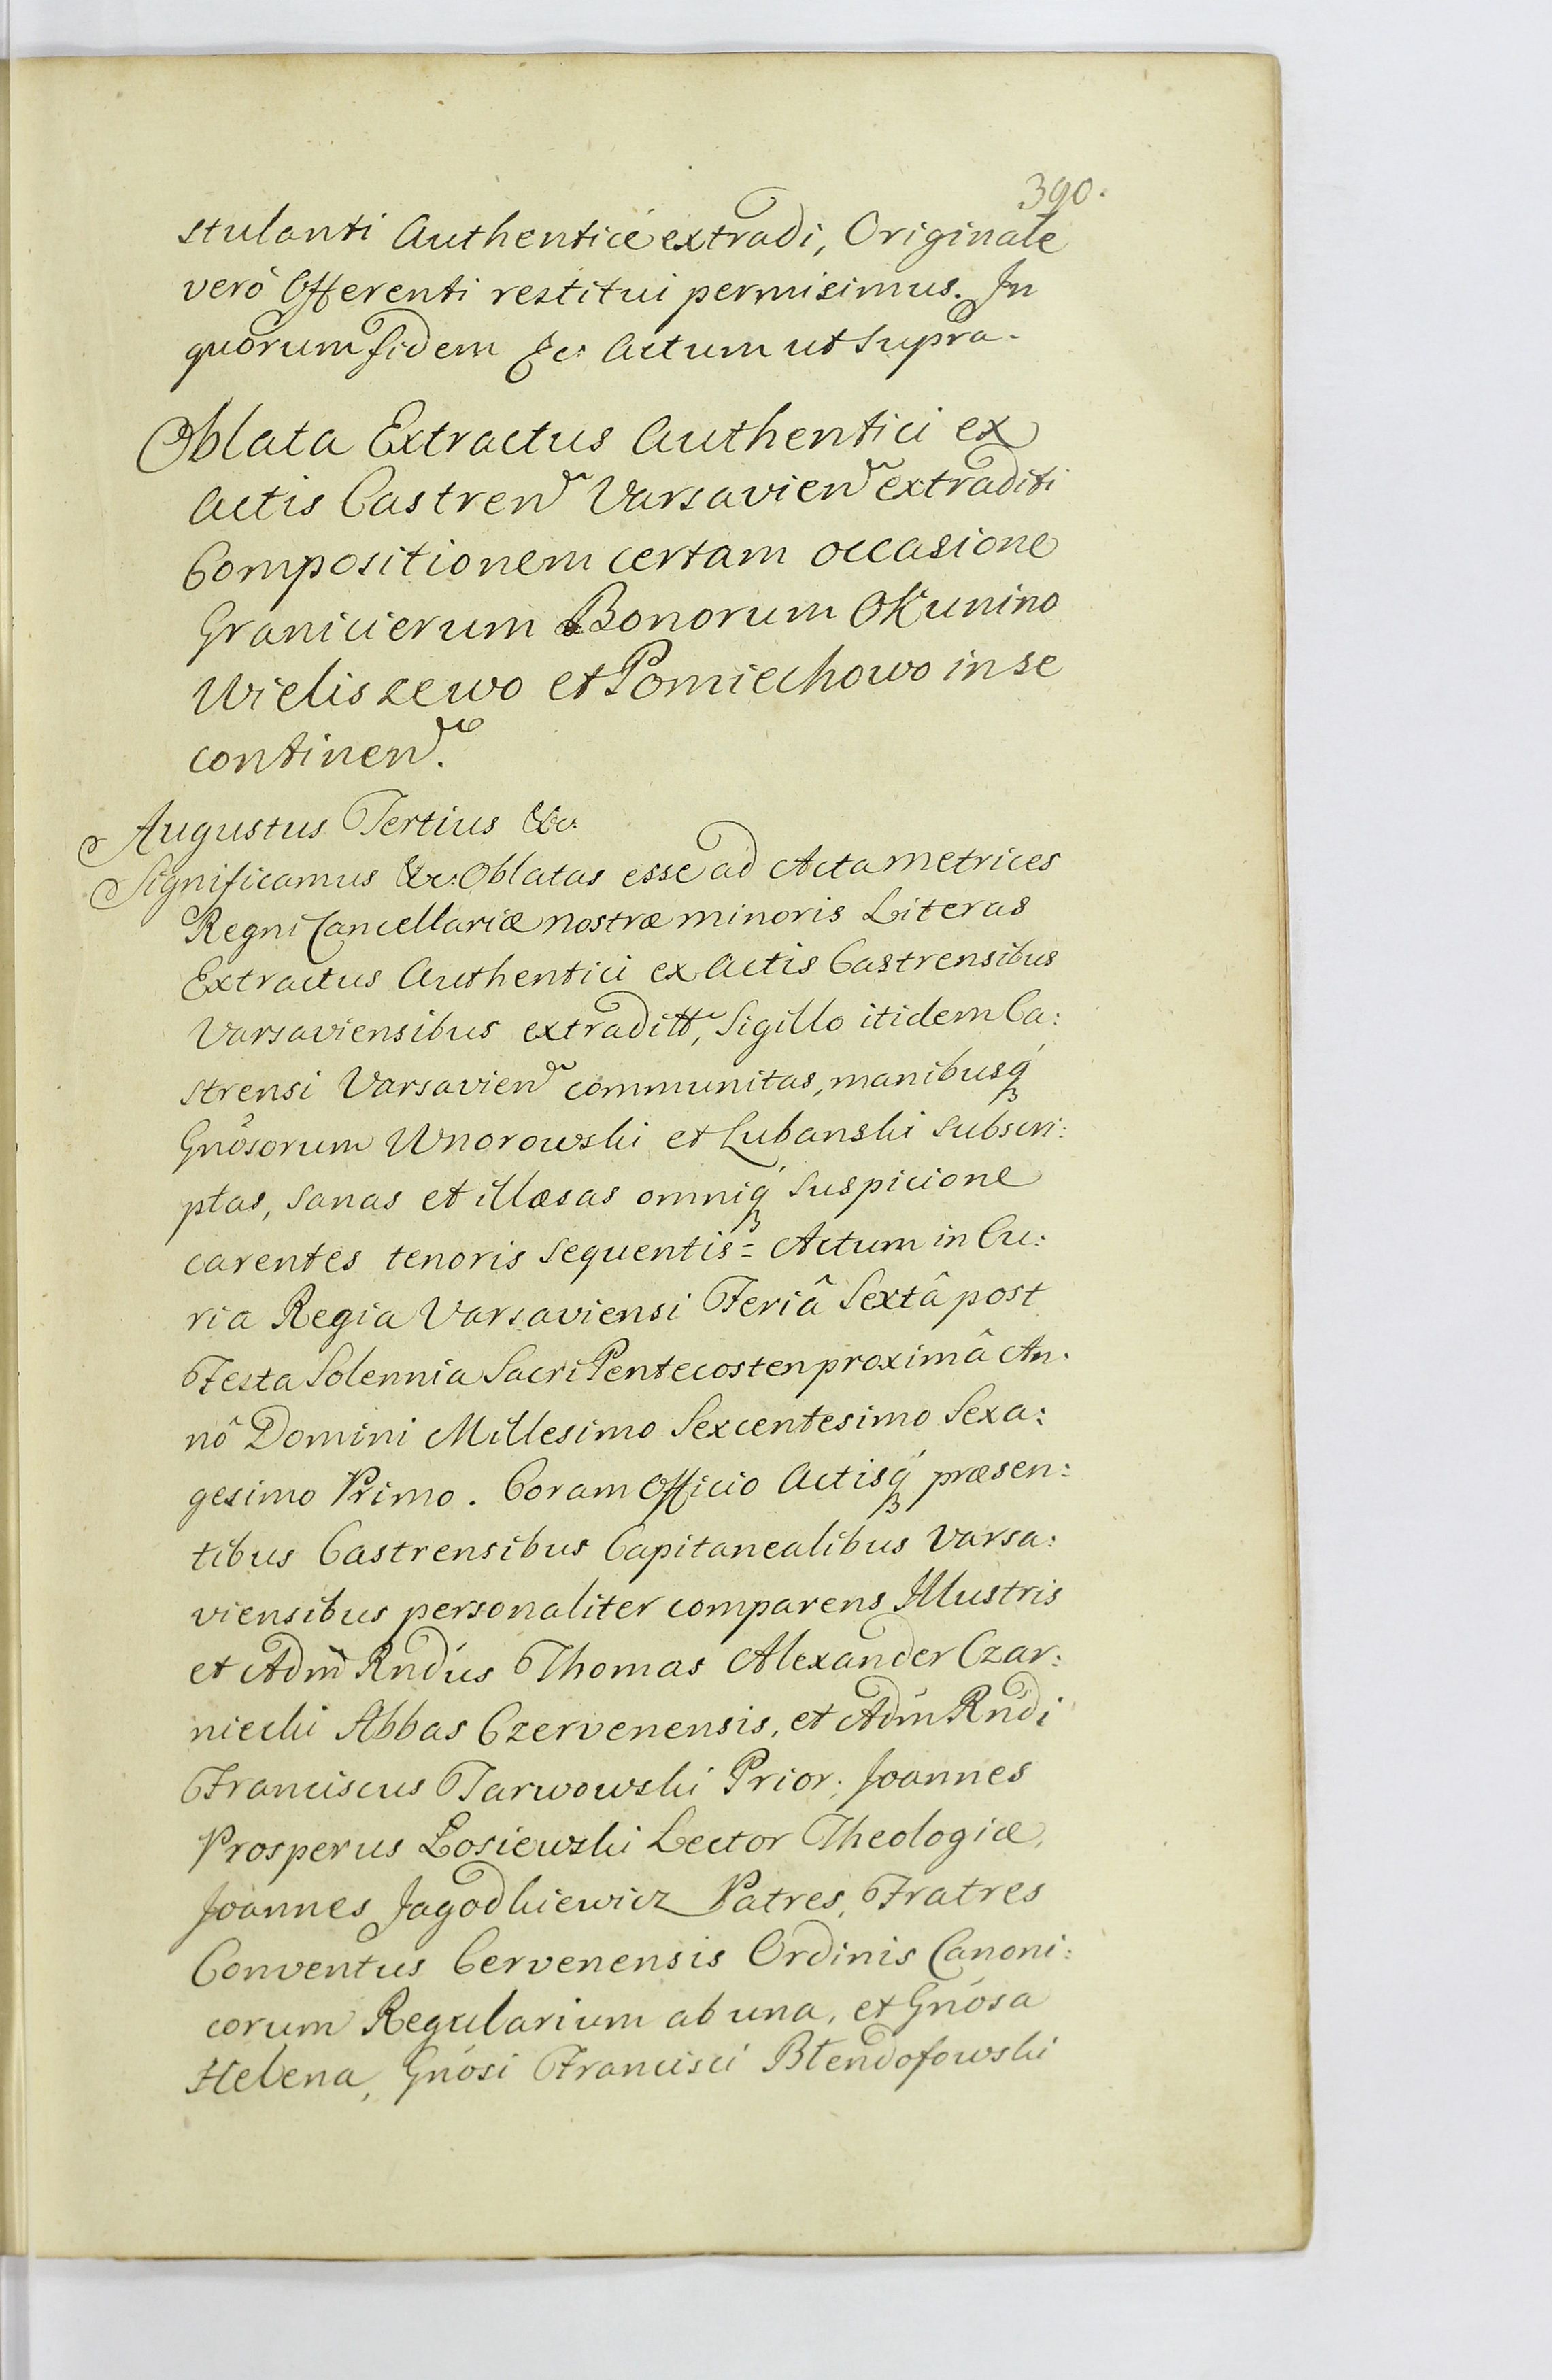 390.
stulanti Authenticè extradi, Originale
verò Offerenti restitui permisimus. In
quorum fidem &c: Actum ut supra.
Oblata Extractus Authentici ex
Actis Castren Varsavien extraditi
Compositionem certam occasione
Granicierum Bonorum Okunino
Wieliszewo et Pomiechowo in se
continen.
Augustus Tertius &c:
Significamus &c: Oblatas esse ad Acta Metrices
Regni Cancellariæ nostræ minoris Literas
Extractus Authentici ex Actis Castrensibus
Varsaviensibus extraditt, Sigillo itidem Ca:
strensi Varsavien communitas, manibusq́
Gnôsorum Wnorowski et Lubanski subscri:
ptas, sanas et illæsas omniq́ suspicione
carentes tenoris sequentis = Actum in Cu:
ria Regia Varsaviensi Feriâ Sextâ post
Festa Solennia Sacri Pentecosten proximâ An:
nô Domini Millesimo Sexcentesimo Sexa:
gesimo Primo. Coram Officio Actisq́ præsen:
tibus Castrensibus Capitanealibus Varsa:
viensibus personaliter comparens Illustris
et Adm̃ Rnd́us Thomas Alexander Czar:
niecki Abbas Czervenensis, et Adḿ Rńdi
Franciscus Tarwowski Prior, Joannes
Prosperus Łosiewski Lector Theologiæ,
Joannes Jagodkiewicz Patres, Fratres
Conventus Cervenensis Ordinis Canoni:
corum Regularium ab una, et Gnósa
Helena, Gnósi Francisci Błendofowski